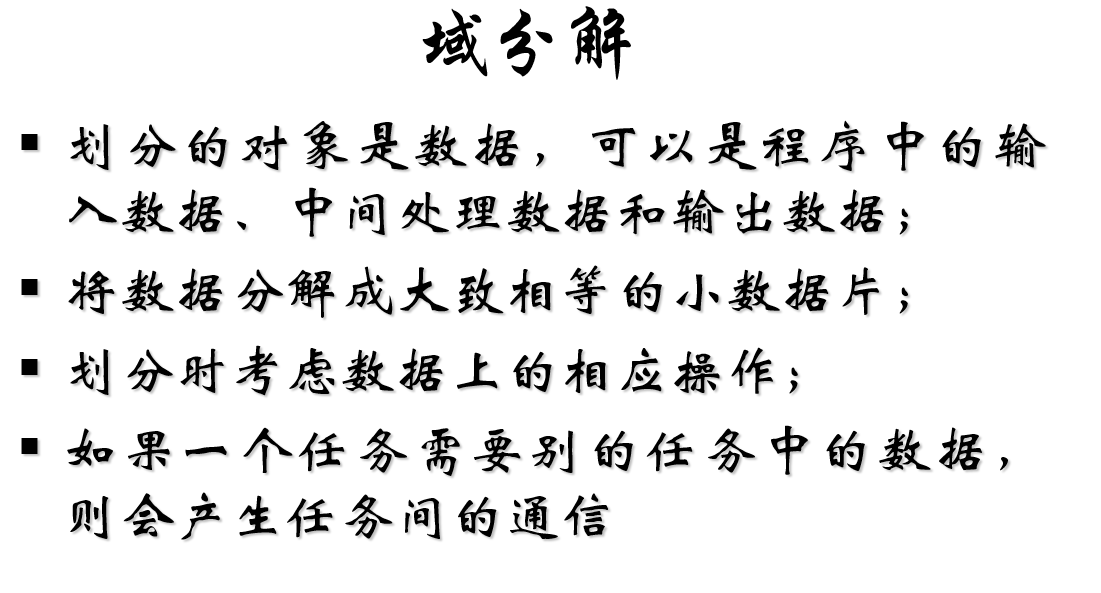 域分解
▪ 划分的对象是数据，可以是程序中的输
入数据、中间处理数据和输出数据；
▪ 将数据分解成大致相等的小数据片；
▪ 划分时考虑数据上的相应操作；
▪ 如果一个任务需要别的任务中的数据，
则会产生任务间的通信